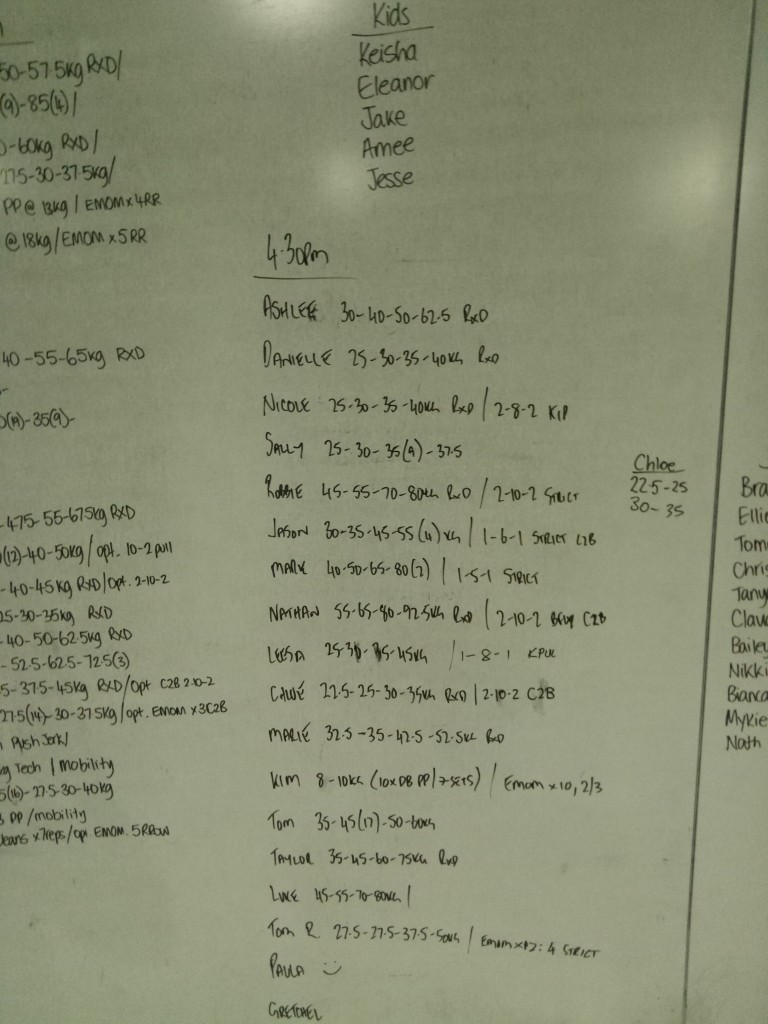 50-57.5kg RXD/
(9)-85(4)/
-60kg RXD/
27.5-30-37.5kg/
PP@ 13kg / EMOM x 4RR
@ 18kg/EMOM x 5 RR
40-55-65kg RXD
-35(9)-
-47.5-55-67.5kg RXD
(12)-40-50kg/opt. 10-2 pull
-40-45kg RXD/opt. 2-10-2
25-30-35kg RXD
40-50-62.5kg RXD
-52.5-62.5-72.5(3)
5-37.5-45kg RXD/opt C2B 2-10-2
27.5(14)-30-37.5kg/opt. EMOM x3C2B
Push Jerk/
Tech / mobility
5(16)-27.5-30-40kg
DP /mobility
x7reps/opt EMOM. 5 RROW
Kids
Keisha
Eleanor
Jake
Amee
Jesse
4.30pm
ASHLEE 30-40-50-62.5 RXD
DANIELLE 25-30-35-40KG RXD
NICOLE 25-30-35-40KG RXD / 2-8-2 KIP
SALLY 25-30-35(9)-37.5
ROBBIE 45-55-70-80KG RXD / 2-10-2 STRICT
JASON 30-35-45-55(4)KG / 1-6-1 STRICT C2B
MARK 40-50-65-80(7) / 1-5-1 STRICT
NATHAN 55-65-80-92.5KG RXD / 2-10-2 C2B
LEESA 25-30-35-45KG / 1-8-1
CHLOÉ 22.5-25-30-35KG RXD / 2-10-2 C2B
MARIÉ 32.5-35-42.5-52.5KG RXD
KIM 8-10KG (10xDB PP/7 SETS) / EMOM x 10, 2/3
TOM 35-45(17)-50-60KG
TAYLOR 35-45-60-75KG RXD
LUKE 45-55-70-80KG /
TOM R 27.5-27.5-37.5-50KG / EMOM x12: 4 STRICT
PAULA
GRETCHEL
Chloe
22.5-25
30-35
Bra
Ellie
Tom
Chris
Tany
Clau
Bailey
Nikki
Bianca
Mykie
Nath